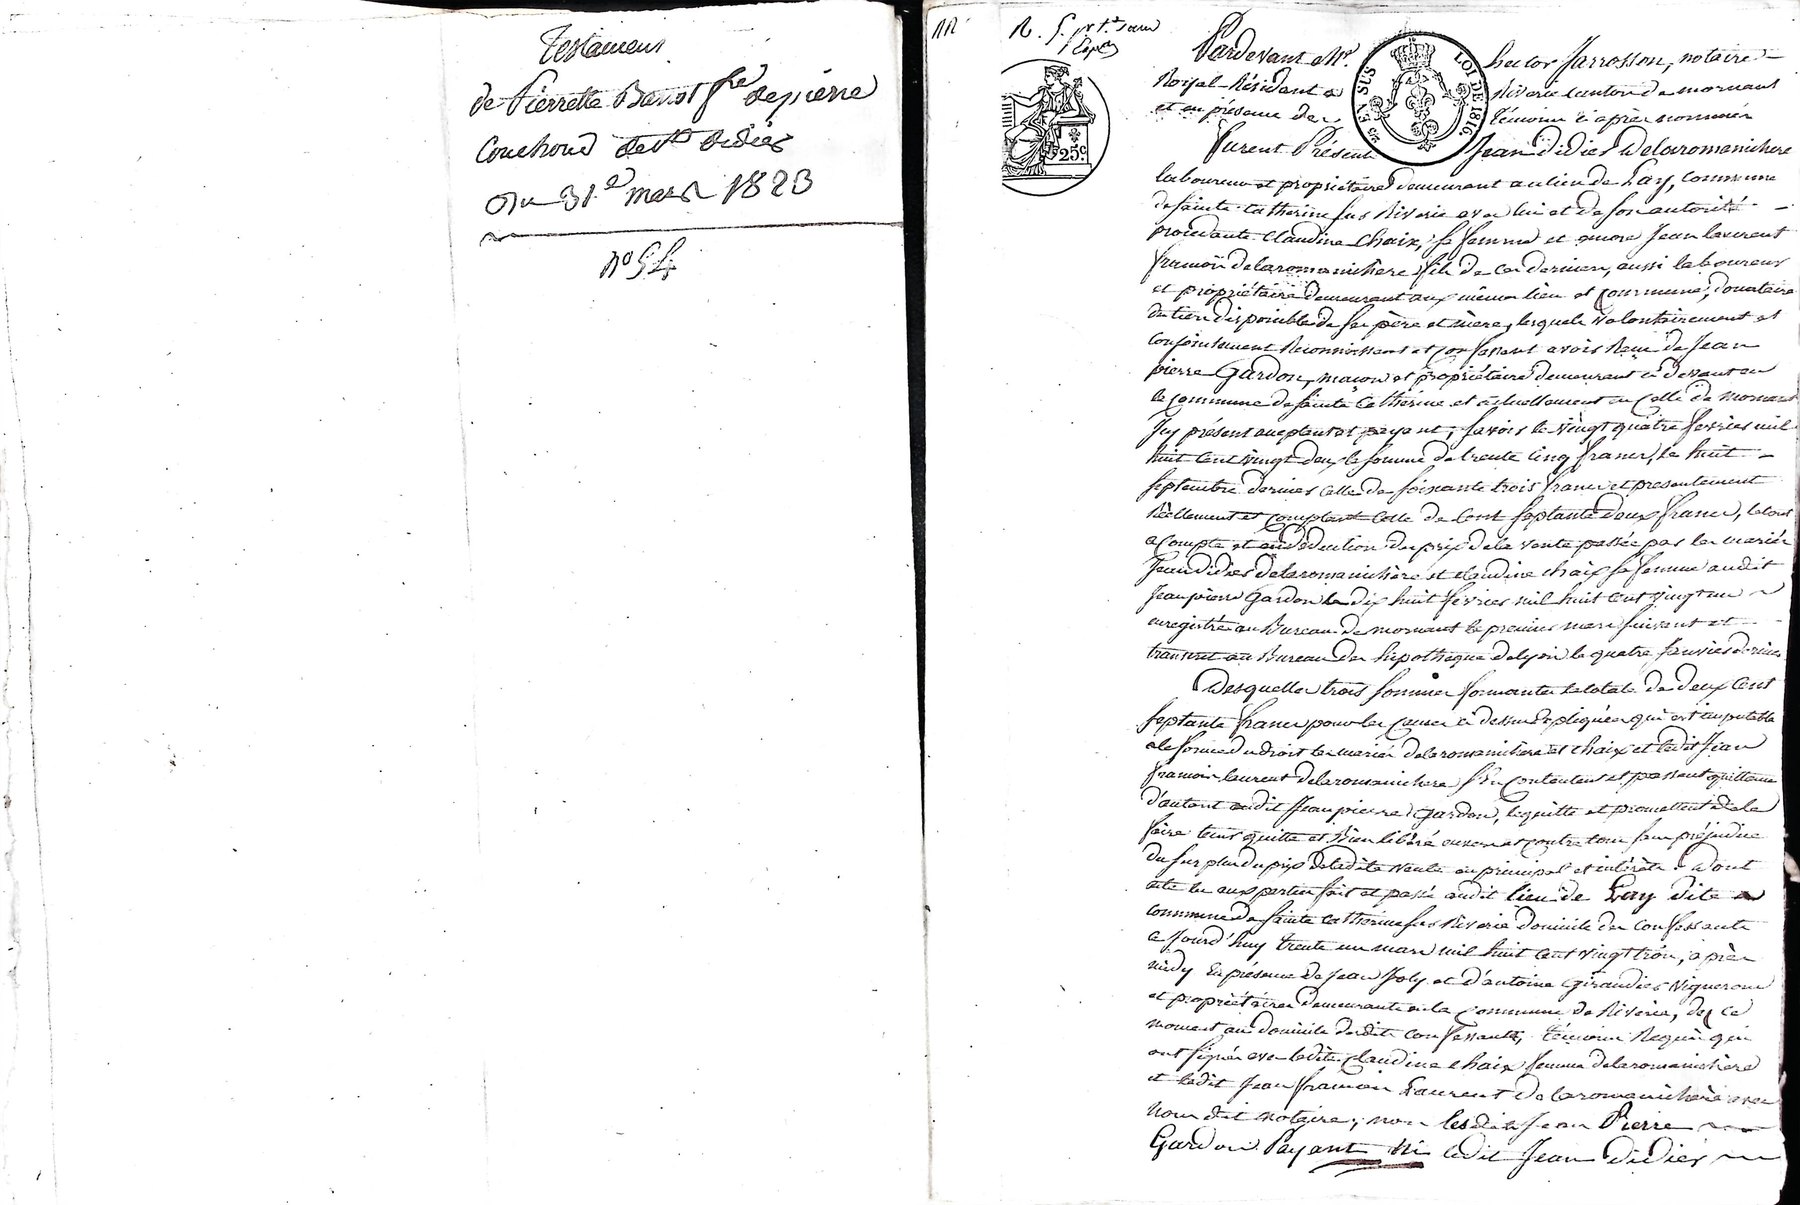 Testament
de Pierrette Barrot fe de pierre
Couchoud dette didier
Du 31e mars 1823
No 54
N. S. pr 1e
Pardevant Me hector Jarrosson, notaire
Roiyal Résident a Riverie canton de mornant
et en présence des témoins ci après nommés
furent Présent Jean didier delaromanichere
laboureur et propriétaire demeurant au lieu de Lay, commune
de sainte catherine sus Riverie avec lui et de son autorité
procédante claudine chaix, sa femme et encore Jean laurent
françois delaromanichère fils de ce dernier, aussi laboureur
et propriétaire demeurant aux mêmes lieu et commune, donataire
du tiers disponible de ses père et mère, lesquels volontairement et
conjointement Reconnissent et confessent avoir Reçu de Jean
pierre Gardon, maçon et propriétaire demeurant ci devant en
la commune de sainte catherine et actuellement en celle de mornant
Icy présent acceptant et payant, savoir le vingt quatre fevrier mil
huit cent vingt deux la somme de trente cinq francs, le huit
septembre dernier celle de soixante trois francs et presentement
Réellement et comptant celle de cent septante deux francs, le tout
a compte et en déduction du prix de la vente passée par les mariés
Jean didier delaromanichère et claudine chaix sa femme audit
Jean pierre Gardon le dix huit fevrier mil huit cent vingt un
enregistrée au Bureau de mornant le premier mars suivant et
transcrit au Bureau des hipothèque de lyon le quatre janvier dernier
Desquelles trois sommes formantes le totale de deux cent
septante francs pour les causes ci dessus expliquées qui est imputable
a la forme du droit les mariés delaromanichère et chaix et ledit Jean
francois laurent delaromanichere s'En contentent et passent quittance
d'autant audit Jean pierre Gardon, le quitte et promettent de le
faire tenir quitte et Bien libéré envers et contre tous sans préjudice
du surplus du prix de ladite vente en principal et intérêts. Dont
acte lu aux parties fait et passé audit lieu de Lay dite
commune de sainte catherine sus Riverie domicile des confessants
ce Jourd'huy trente un mars mil huit cent vingt trois, après
midy En présence de Jean Joly et d'antoine Giraudier vignerons
et propriétaires demeurants en la commune de Riverie, de ce
moment au domicile desdits confessants, témoins Requis qui
ont signés avec ladite claudine chaix femme delaromanichère
et ledit Jean francois Laurent delaromanichère avec
nous dit notaire, non lesdits Jean Pierre
Gardon Payant Ni ledit Jean didier
25c
25 EN SUS LOI DE 1816